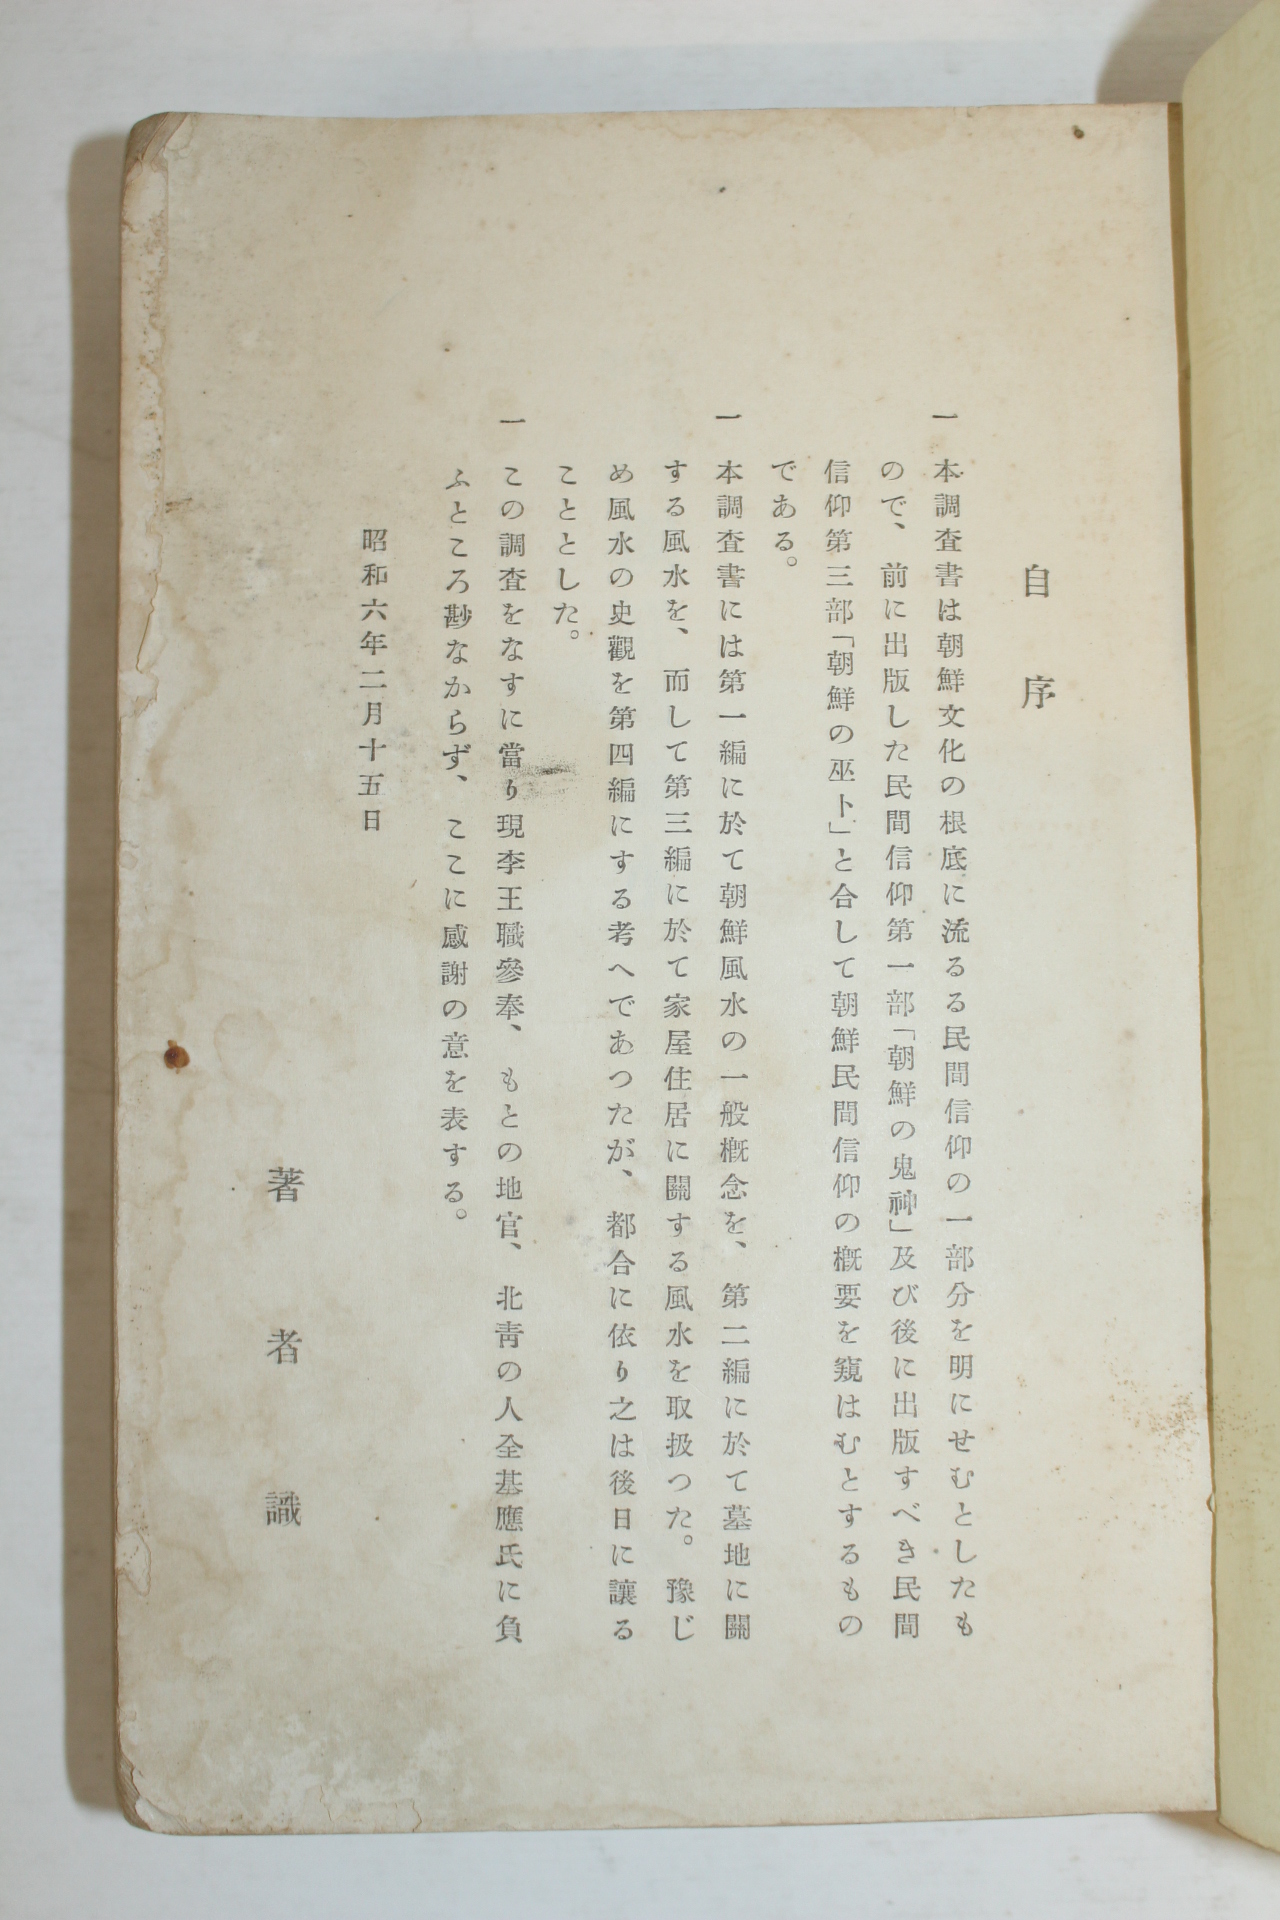 自序
一 本調査書は朝鮮文化の根底に流るる民間信仰の一部分を明にせむとしたも
ので、前に出版した民間信仰第一部「朝鮮の鬼神」及び後に出版すべき民間
信仰第三部「朝鮮の巫卜」と合して朝鮮民間信仰の概要を窺はむとするもの
である。
一 本調査書には第一編に於て朝鮮風水の一般概念を、第二編に於て墓地に關
する風水を、而して第三編に於て家屋住居に關する風水を取扱つた。豫じ
め風水の史觀を第四編にする考へであつたが、都合に依り之は後日に讓る
こととした。
一 この調査をなすに當り現李王職參奉、もとの地官、北靑の人全基應氏に負
ふところ尠なからず、ここに感謝の意を表する。
昭和六年二月十五日
著者識